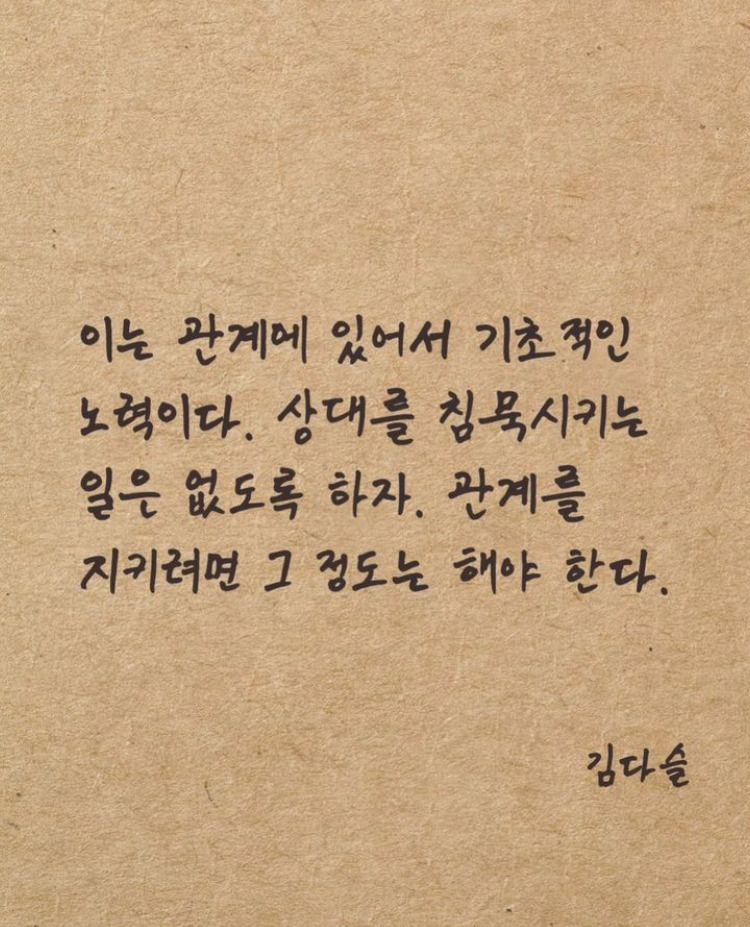 이는 관계에 있어서 기초적인
노력이다. 상대를 침묵시키는
일은 없도록 하자. 관계를
지키려면 그 정도는 해야 한다.
김다슬